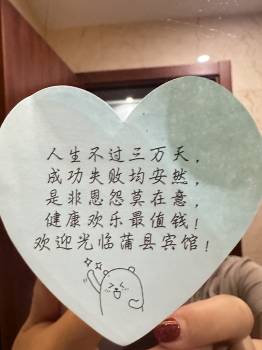 人生不过三万天，
成功失败均安然，
是非恩怨莫在意，
健康欢乐最值钱！
欢迎光临蒲县宾馆！